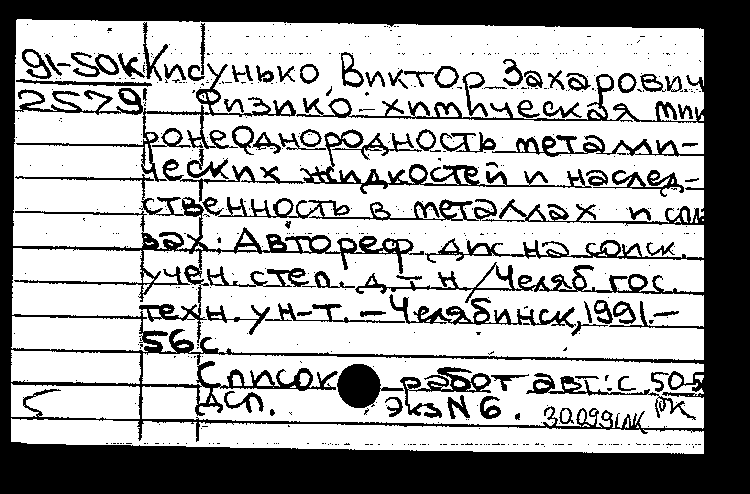 91-50К Кисунько Виктор Захарович
2579 Физико-химическая мик
ронеоднородность металли-
ческих жидкостей и наслед-
ственность в металлах и спла
вах: Автореф. дис на соиск.
учен. степ. д.т.н./Челяб. гос.
техн. ун-т. – Челябинск, 1991.–
56с.
Список работ авт.: с. 50-5
5 ДСП. Экз N 6. 30.09.91